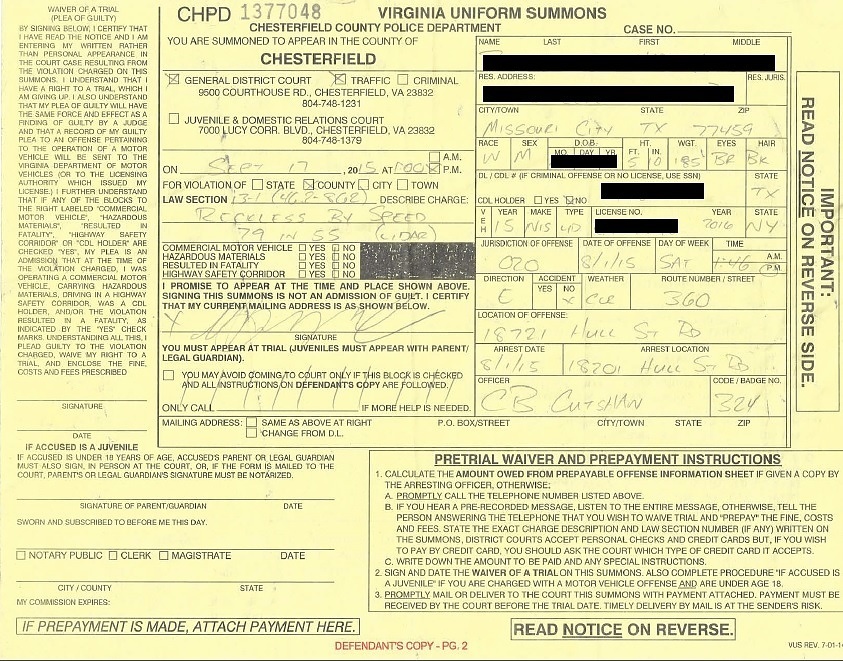 WAIVER OF A TRIAL
(PLEA OF GUILTY)
BY SIGNING BELOW, I CERTIFY THAT I
HAVE READ THE NOTICE AND I AM
ENTERING MY WRITTEN RATHER
THAN PERSONAL APPEARANCE IN
THE COURT CASE RESULTING FROM
THE VIOLATION CHARGED ON THIS
SUMMONS. I UNDERSTAND THAT I
HAVE A RIGHT TO A TRIAL, WHICH I
AM GIVING UP. I ALSO UNDERSTAND
THAT MY PLEA OF GUILTY WILL HAVE
THE SAME FORCE AND EFFECT AS A
FINDING OF GUILTY BY A JUDGE AND
THAT A RECORD OF MY GUILTY
PLEA TO AN OFFENSE PERTAINING
TO THE OPERATION OF A MOTOR
VEHICLE WILL BE SENT TO THE
VIRGINIA DEPARTMENT OF MOTOR
VEHICLES (OR TO THE LICENSING
AUTHORITY WHICH ISSUED MY
LICENSE.) I FURTHER UNDERSTAND
THAT IF ANY OF THE BLOCKS TO
THE RIGHT LABELED "COMMERCIAL
MOTOR VEHICLE", "HAZARDOUS
MATERIALS", "RESULTED IN
FATALITY", "HIGHWAY SAFETY
CORRIDOR" OR "CDL HOLDER" ARE
CHECKED "YES", MY PLEA IS AN
ADMISSION THAT AT THE TIME OF
THE VIOLATION CHARGED, I WAS
OPERATING A COMMERCIAL MOTOR
VEHICLE, CARRYING HAZARDOUS
MATERIALS, DRIVING IN A HIGHWAY
SAFETY CORRIDOR, WAS A CDL
HOLDER, AND/OR THE VIOLATION
RESULTED IN A FATALITY, AS
INDICATED BY THE "YES" CHECK
MARKS. UNDERSTANDING ALL THIS, I
PLEAD GUILTY TO THE VIOLATION
CHARGED, WAIVE MY RIGHT TO A
TRIAL, AND ENCLOSE THE FINE,
COSTS AND FEES PRESCRIBED
SIGNATURE
DATE
IF ACCUSED IS A JUVENILE
IF ACCUSED IS UNDER 18 YEARS OF AGE, ACCUSED'S PARENT OR LEGAL GUARDIAN
MUST ALSO SIGN, IN PERSON AT THE COURT, OR, IF THE FORM IS MAILED TO THE
COURT, PARENT'S OR LEGAL GUARDIAN'S SIGNATURE MUST BE NOTARIZED.
SIGNATURE OF PARENT/GUARDIAN DATE
SWORN AND SUBSCRIBED TO BEFORE ME THIS DAY.
NOTARY PUBLIC CLERK MAGISTRATE DATE
CITY / COUNTY STATE
MY COMMISSION EXPIRES:
IF PREPAYMENT IS MADE, ATTACH PAYMENT HERE.
CHPD 1377048 VIRGINIA UNIFORM SUMMONS
CHESTERFIELD COUNTY POLICE DEPARTMENT CASE NO.
YOU ARE SUMMONED TO APPEAR IN THE COUNTY OF
CHESTERFIELD
GENERAL DISTRICT COURT TRAFFIC CRIMINAL
9500 COURTHOUSE RD., CHESTERFIELD, VA 23832
804-748-1231
JUVENILE & DOMESTIC RELATIONS COURT
7000 LUCY CORR. BLVD., CHESTERFIELD, VA 23832
804-748-1379
ON SEPT 17, 2015 AT A.M. P.M.
FOR VIOLATION OF STATE COUNTY CITY TOWN
LAW SECTION 13-1 (46.2-862) DESCRIBE CHARGE:
RECKLESS BY SPEED
79 IN 55 (LIDAR)
COMMERCIAL MOTOR VEHICLE YES NO
HAZARDOUS MATERIALS YES NO
RESULTED IN FATALITY YES NO
HIGHWAY SAFETY CORRIDOR YES NO
I PROMISE TO APPEAR AT THE TIME AND PLACE SHOWN ABOVE.
SIGNING THIS SUMMONS IS NOT AN ADMISSION OF GUILT. I CERTIFY
THAT MY CURRENT MAILING ADDRESS IS AS SHOWN BELOW.
X
SIGNATURE
YOU MUST APPEAR AT TRIAL (JUVENILES MUST APPEAR WITH PARENT/
LEGAL GUARDIAN).
YOU MAY AVOID COMING TO COURT ONLY IF THIS BLOCK IS CHECKED
AND ALL INSTRUCTIONS ON DEFENDANT'S COPY ARE FOLLOWED.
ONLY CALL IF MORE HELP IS NEEDED.
MAILING ADDRESS: SAME AS ABOVE AT RIGHT P.O. BOX/STREET CITY/TOWN STATE ZIP
CHANGE FROM D.L.
NAME LAST FIRST MIDDLE
RES. ADDRESS: RES. JURIS.
CITY/TOWN STATE ZIP
MISSOURI CITY TX 77459
RACE SEX D.O.B. HT. WGT. EYES HAIR
MO. DAY YR. FT. IN.
W M 5 10 185 BR BK
DL / CDL # (IF CRIMINAL OFFENSE OR NO LICENSE, USE SSN) STATE
CDL HOLDER YES NO TX
VEH YEAR MAKE TYPE LICENSE NO. YEAR STATE
15 NIS 4D 2016 NY
JURISDICTION OF OFFENSE DATE OF OFFENSE DAY OF WEEK TIME
020 8/1/15 SAT 1:46 A.M. P.M.
DIRECTION ACCIDENT WEATHER ROUTE NUMBER / STREET
YES NO
E X CLR 360
LOCATION OF OFFENSE:
18721 HULL ST RD
ARREST DATE ARREST LOCATION
8/1/15 18201 HULL ST RD
OFFICER CODE / BADGE NO.
CB 324
IMPORTANT:
READ NOTICE ON REVERSE SIDE.
PRETRIAL WAIVER AND PREPAYMENT INSTRUCTIONS
1. CALCULATE THE AMOUNT OWED FROM PREPAYABLE OFFENSE INFORMATION SHEET IF GIVEN A COPY BY
THE ARRESTING OFFICER, OTHERWISE:
A. PROMPTLY CALL THE TELEPHONE NUMBER LISTED ABOVE.
B. IF YOU HEAR A PRE-RECORDED MESSAGE, LISTEN TO THE ENTIRE MESSAGE, OTHERWISE, TELL THE
PERSON ANSWERING THE TELEPHONE THAT YOU WISH TO WAIVE TRIAL AND "PREPAY" THE FINE, COSTS
AND FEES. STATE THE EXACT CHARGE DESCRIPTION AND LAW SECTION NUMBER (IF ANY) WRITTEN ON
THE SUMMONS, DISTRICT COURTS ACCEPT PERSONAL CHECKS AND CREDIT CARDS BUT, IF YOU WISH
TO PAY BY CREDIT CARD, YOU SHOULD ASK THE COURT WHICH TYPE OF CREDIT CARD IT ACCEPTS.
C. WRITE DOWN THE AMOUNT TO BE PAID AND ANY SPECIAL INSTRUCTIONS.
2. SIGN AND DATE THE WAIVER OF A TRIAL ON THIS SUMMONS. ALSO COMPLETE PROCEDURE "IF ACCUSED IS
A JUVENILE" IF YOU ARE CHARGED WITH A MOTOR VEHICLE OFFENSE AND ARE UNDER AGE 18.
3. PROMPTLY MAIL OR DELIVER TO THE COURT THIS SUMMONS WITH PAYMENT ATTACHED. PAYMENT MUST BE
RECEIVED BY THE COURT BEFORE THE TRIAL DATE. TIMELY DELIVERY BY MAIL IS AT THE SENDER'S RISK.
READ NOTICE ON REVERSE.
DEFENDANT'S COPY - PG. 2
VUS REV. 7-01-14